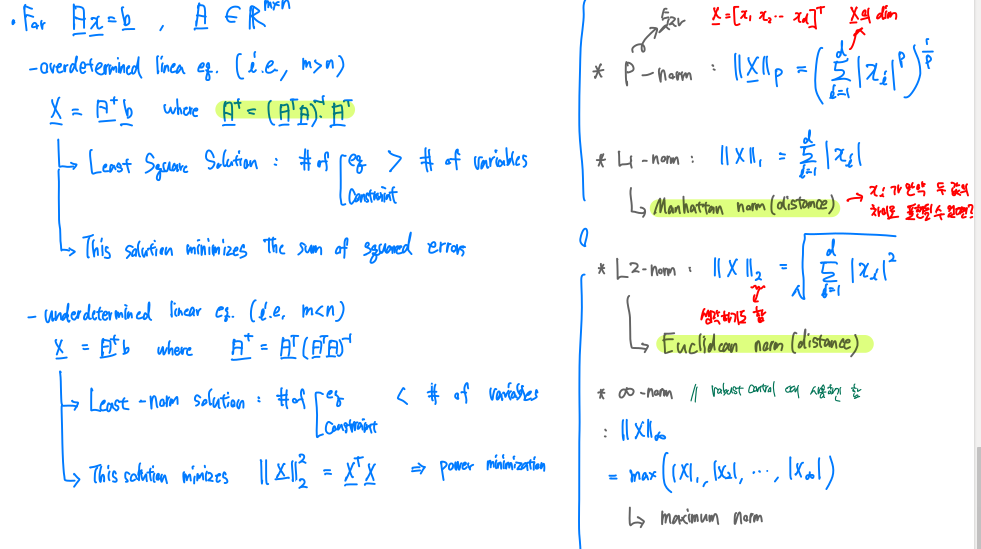 • For Ax = b , A ∈ ℝ^{m×n}
- overdetermined linea eq. (i.e., m>n)
X = A⁺b where A⁺ = (AᵀA)⁻¹·Aᵀ
↳ Least Square Solution : # of [eq > # of variables
Constraint
↳ This solution minimizes The sum of squared errors
- underdetermined linear eq. (i.e, m<n)
X = A⁺b where A⁺ = Aᵀ(AᵀA)⁻¹
↳ Least-norm solution : # of [eq < # of variables
Constraint
↳ This solution minimizes ‖X‖₂² = XᵀX ⇒ power minimization
X = [x₁ x₂ ⋯ x_d]ᵀ X의 dim
* P-norm : ‖X‖_P = (∑_{i=1}^{d} |x_i|^P)^{1/P}
* L1-norm : ‖X‖₁ = ∑_{i=1}^{d} |x_i|
↳ Manhattan norm (distance) → x_i가 만약 두 값의
차이로 표현될 수 있다면?
* L2-norm : ‖X‖₂ = √(∑_{i=1}^{d} |x_i|²)
생략하기도 함
↳ Euclidean norm (distance)
* ∞-norm // robust control 에서 사용하곤 함
: ‖X‖_∞
= max(|X|₁, |X₂|, ⋯, |X_∞|)
↳ maximum norm